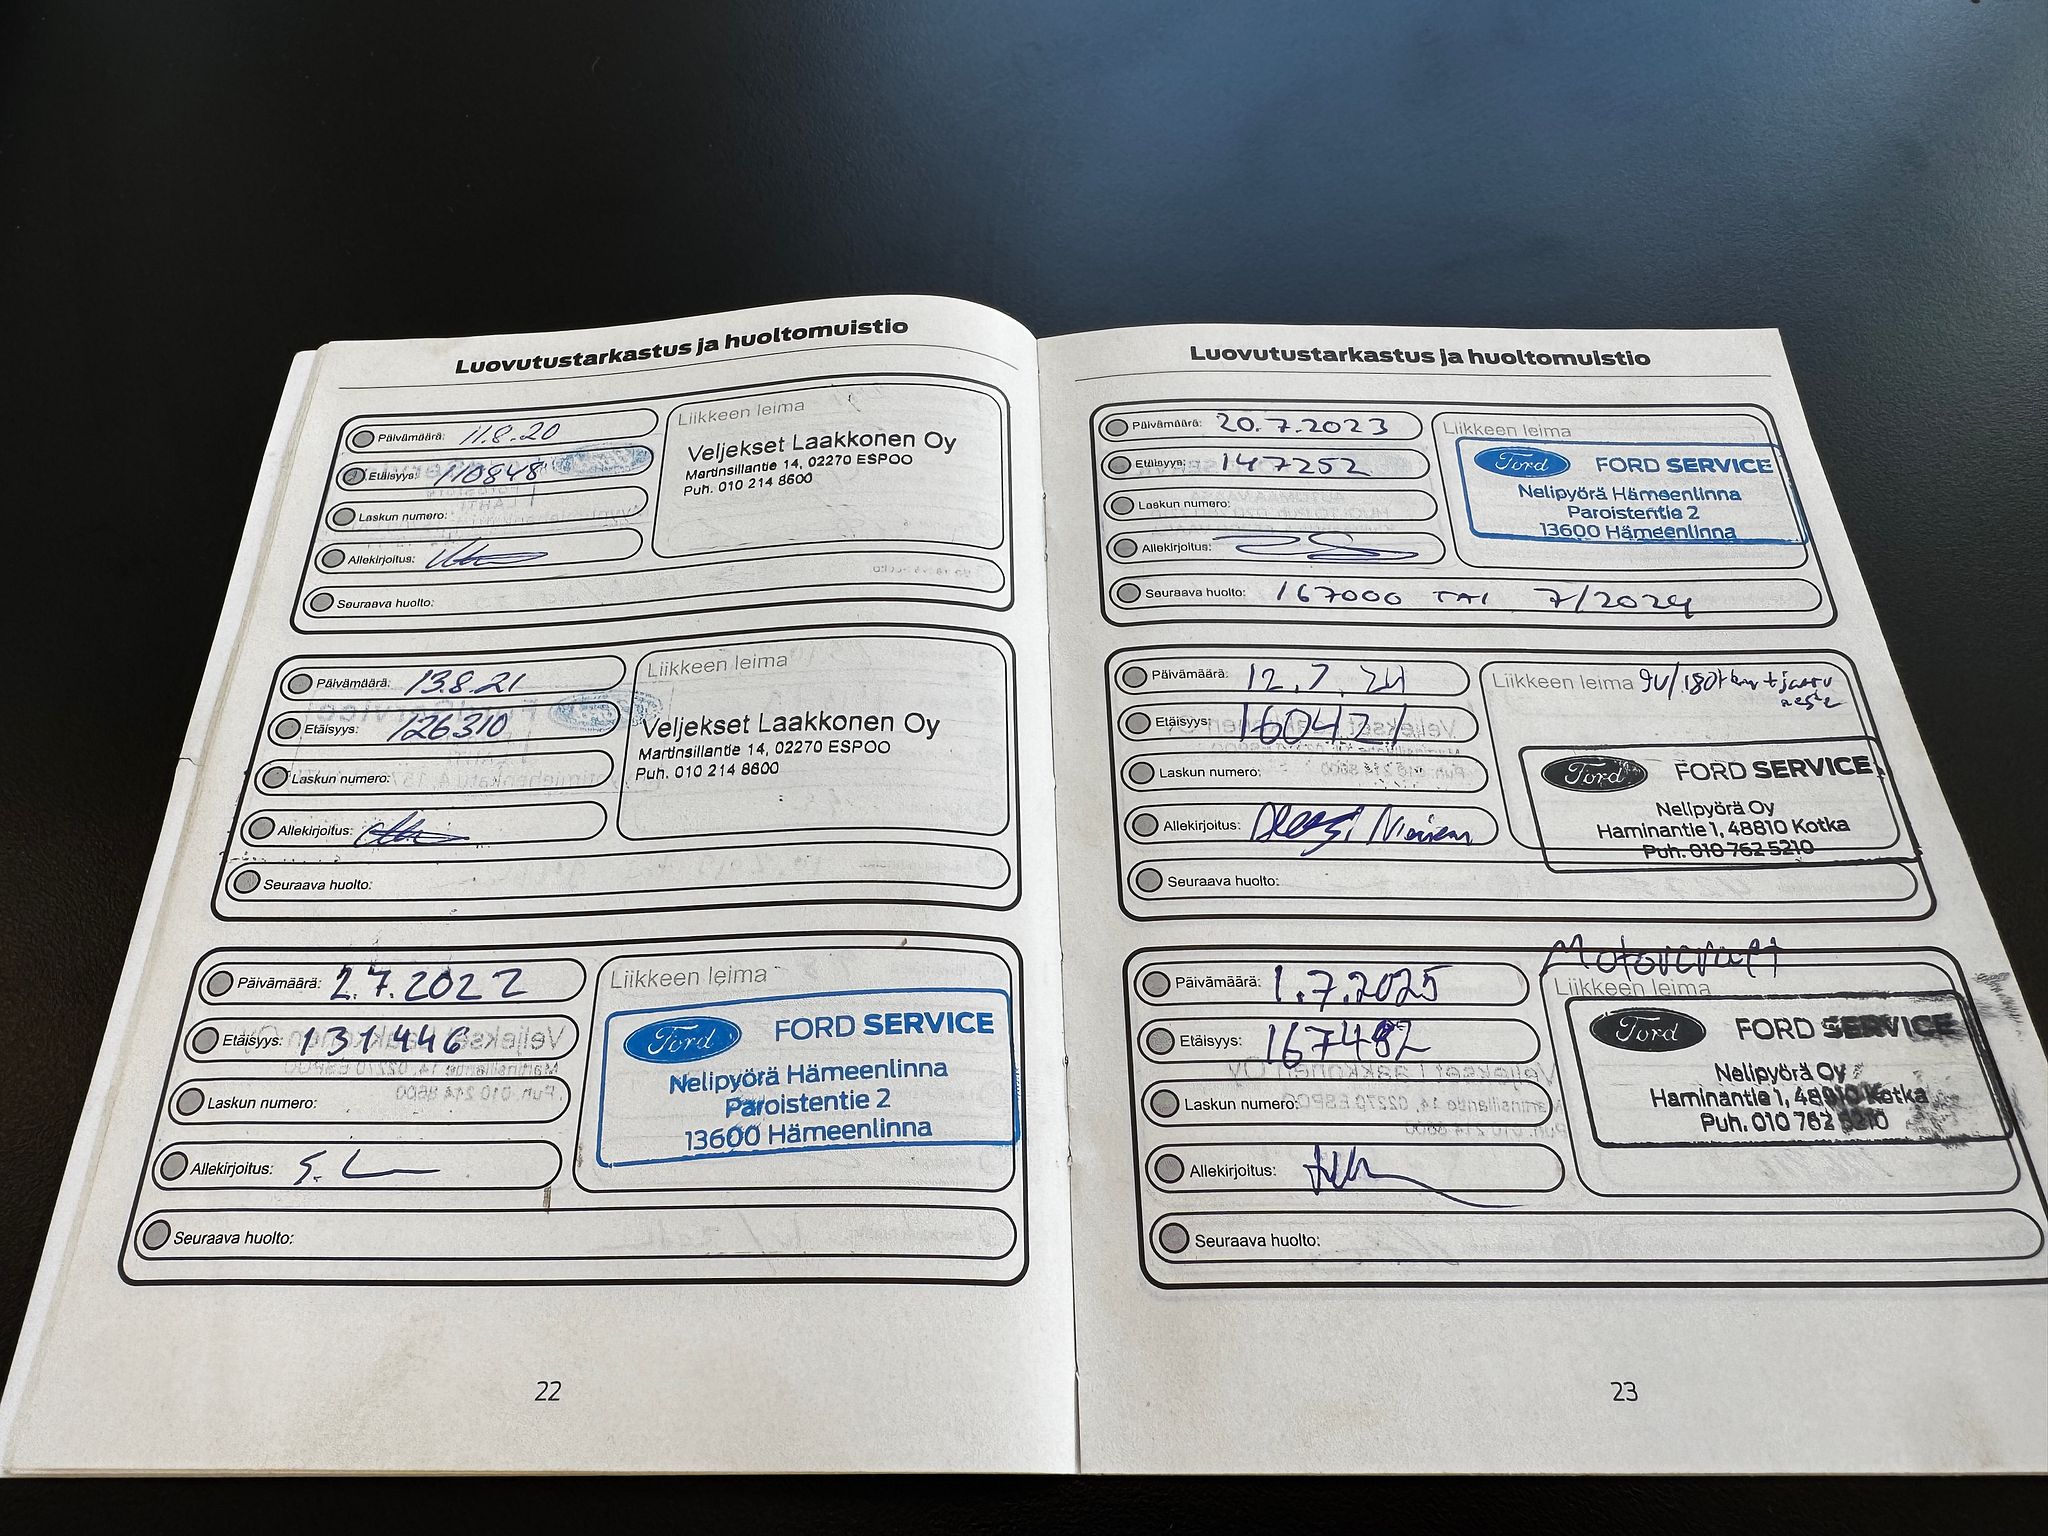 Luovutustarkastus ja huoltomuistio
Päivämäärä: 11.8.20
Etäisyys: 110848
Laskun numero:
Allekirjoitus:
Seuraava huolto:
Liikkeen leima
Veljekset Laakkonen Oy
Martinsillantie 14, 02270 ESPOO
Puh. 010 214 8600
Päivämäärä: 13.8.21
Etäisyys: 126310
Laskun numero:
Allekirjoitus:
Seuraava huolto:
Liikkeen leima
Veljekset Laakkonen Oy
Martinsillantie 14, 02270 ESPOO
Puh. 010 214 8600
Päivämäärä: 2.7.2022
Etäisyys: 131446
Laskun numero:
Allekirjoitus:
Seuraava huolto:
Liikkeen leima
Ford FORD SERVICE
Nelipyörä Hämeenlinna
Paroistentie 2
13600 Hämeenlinna
22
Luovutustarkastus ja huoltomuistio
Päivämäärä: 20.7.2023
Etäisyys: 147252
Laskun numero:
Allekirjoitus:
Seuraava huolto: 167000 TAI 7/2024
Liikkeen leima
Ford FORD SERVICE
Nelipyörä Hämeenlinna
Paroistentie 2
13600 Hämeenlinna
Päivämäärä: 12.7.24
Etäisyys: 160421
Laskun numero:
Allekirjoitus:
Seuraava huolto:
Liikkeen leima
Ford FORD SERVICE
Nelipyörä Oy
Haminantie 1, 48810 Kotka
Puh. 010 762 5210
Päivämäärä: 1.7.2025
Etäisyys: 167482
Laskun numero:
Allekirjoitus:
Seuraava huolto:
Motorcraft
Liikkeen leima
Ford FORD SERVICE
Nelipyörä Oy
Haminantie 1, 48810 Kotka
Puh. 010 762 5210
23